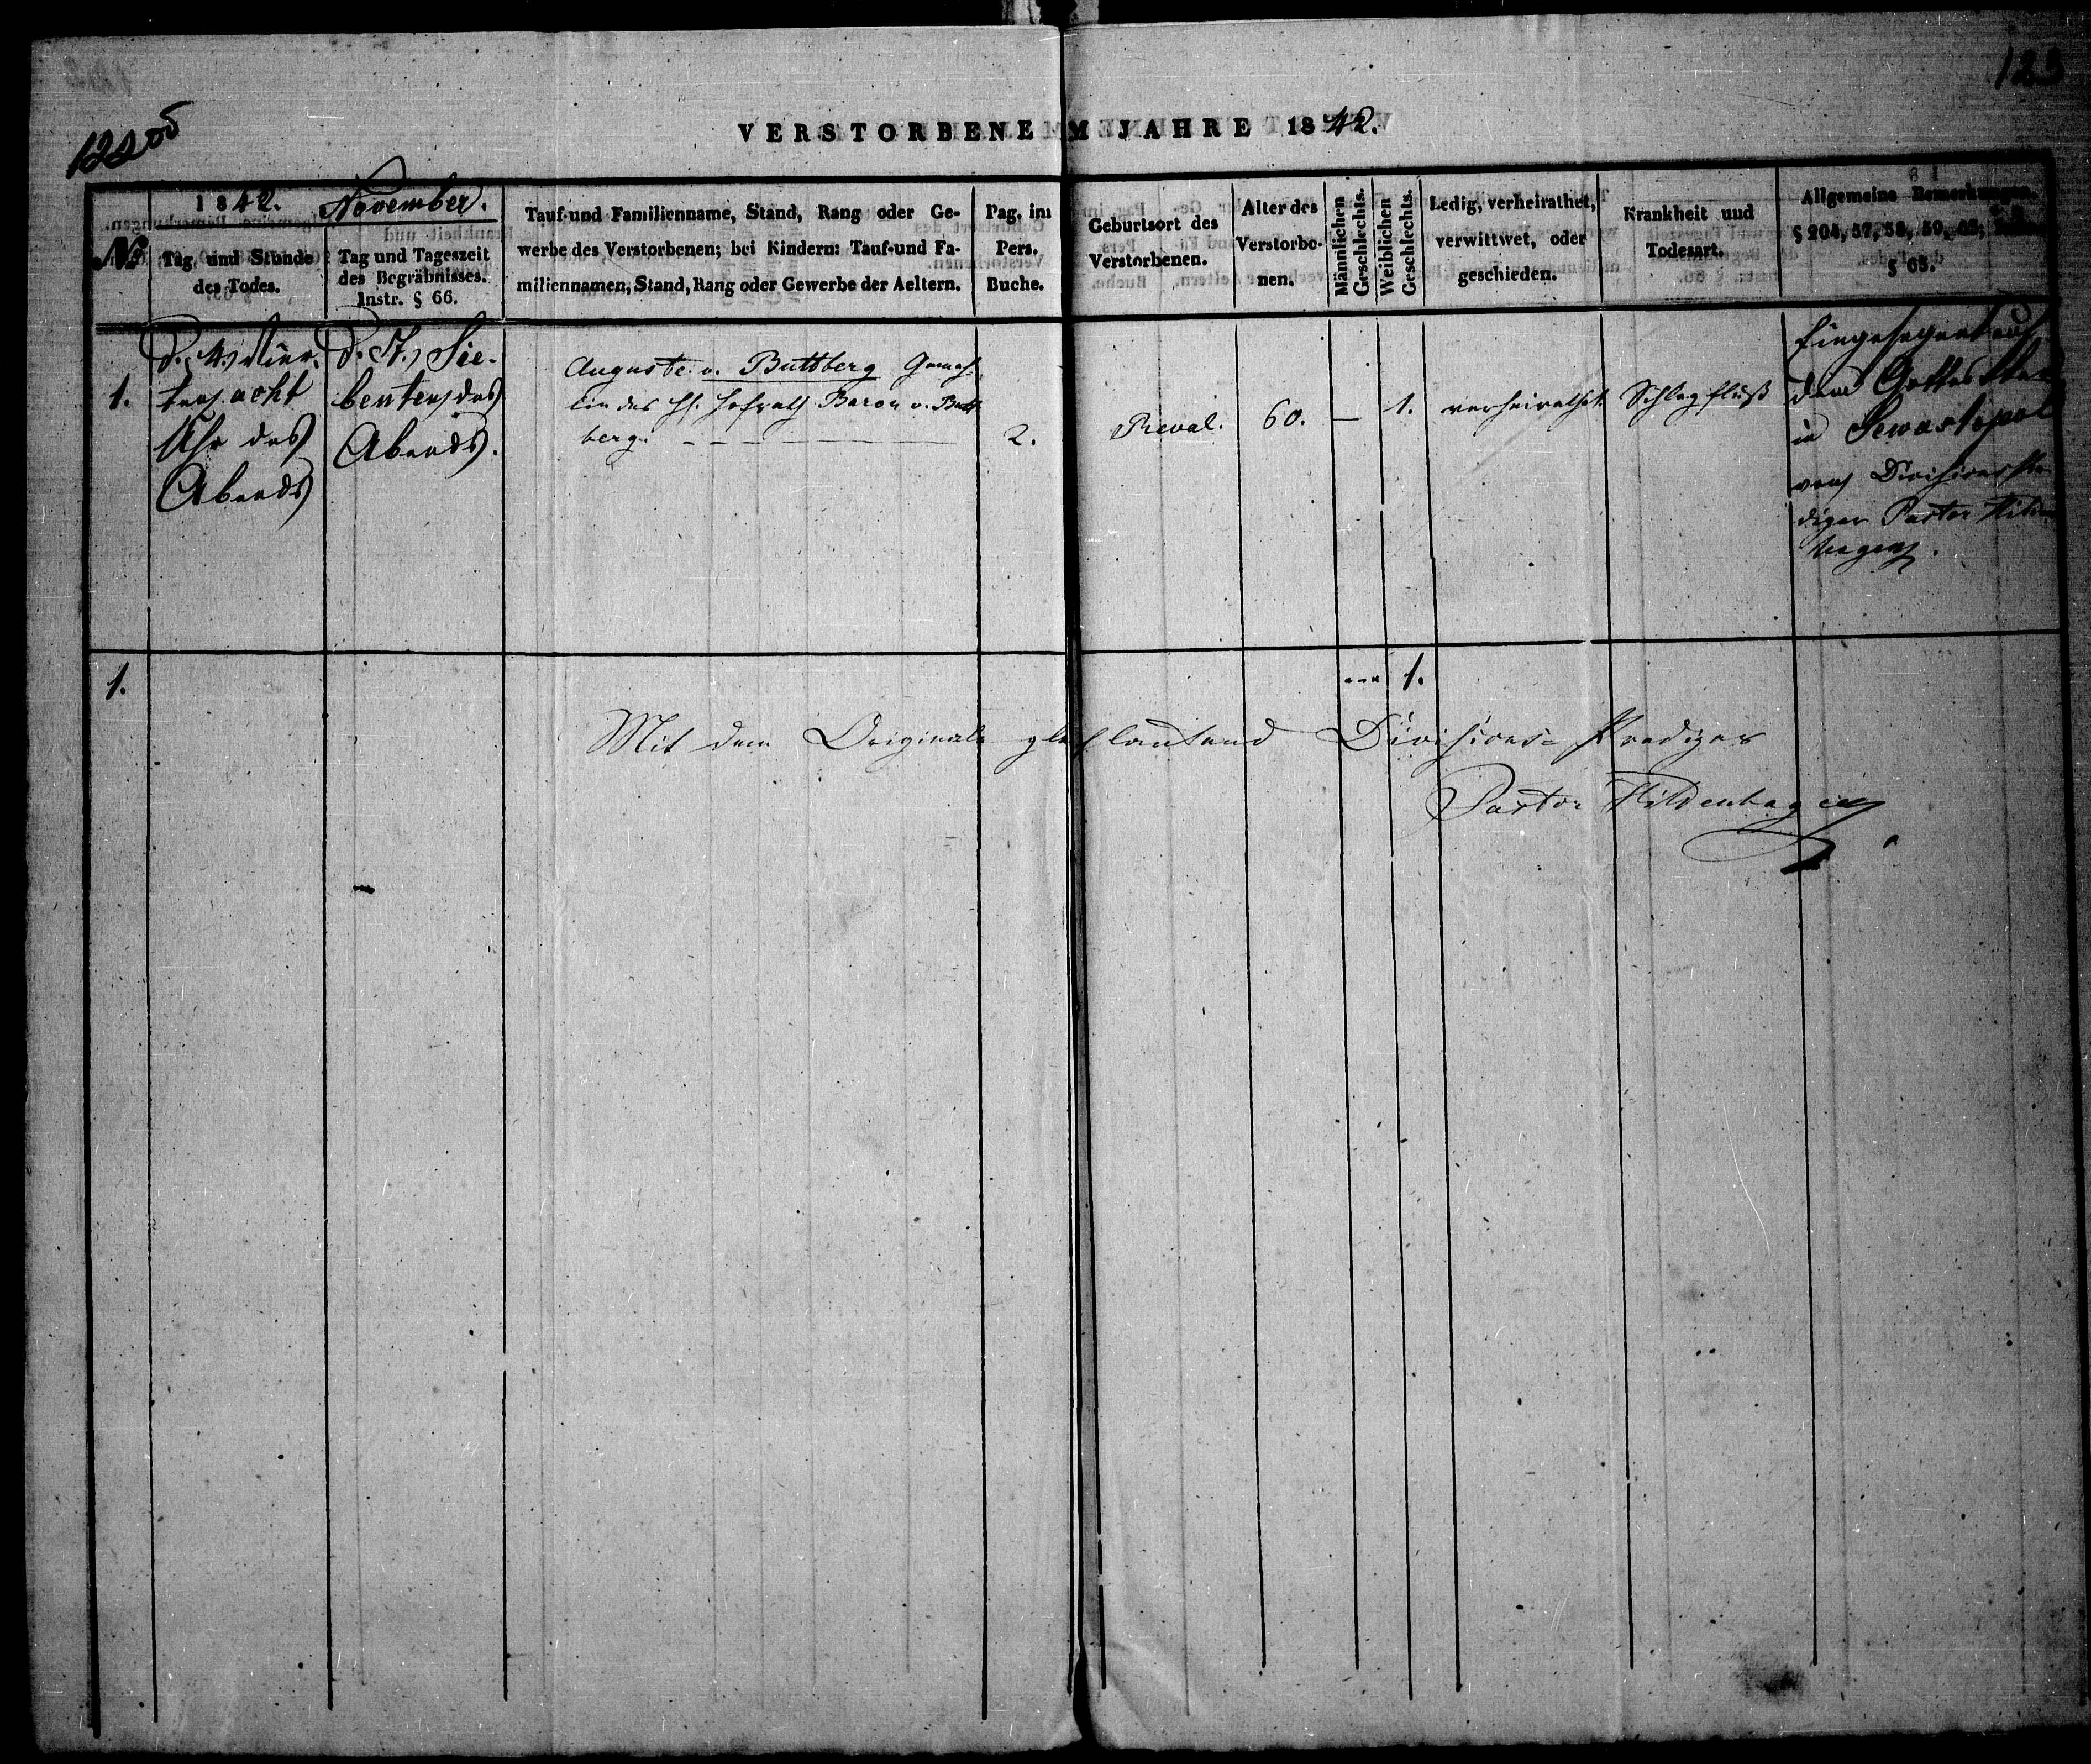 123
122 об
VERSTORBENE IM JAHRE 1842.
1842. November.
№
Tag und Stunde
des Todes.
Tag und Tageszeit
des Begräbnisses.
Instr. § 66.
Tauf-und Familienname, Stand, Rang oder Ge-
werbe des Verstorbenen; bei Kindern: Tauf-und Fa-
miliennamen, Stand, Rang oder Gewerbe der Aeltern.
Pag. im
Pers.
Buche.
Geburtsort des
Verstorbenen.
Alter des
Verstorbe-
nen.
Männlichen
Geschlechts.
Weiblichen
Geschlechts.
Ledig, verheirathet,
verwittwet, oder
geschieden.
Krankheit und
Todesart.
Allgemeine Bemerkungen.
§ 204, 57, 58, 59, 63;
§ 65.
1.
D. 4, Vier-
ten acht
Uhr des
Abends
D. 7, Sie-
benten des
Abends.
Auguste v. Buttberg Gemah-
lin des H. Hofrath Baron v. Butt
berg.
2.
Reval.
60.
—
1.
verheirathet
Schlagfluß
Eingesegnet auf
dem Gottes
in Sewastopol
vom Divisions Pre-
diger Pastor Hilden
hagen.
1.
1.
Mit dem Originale gleichlautend Divisions-Prediger
Pastor Hildenhagen